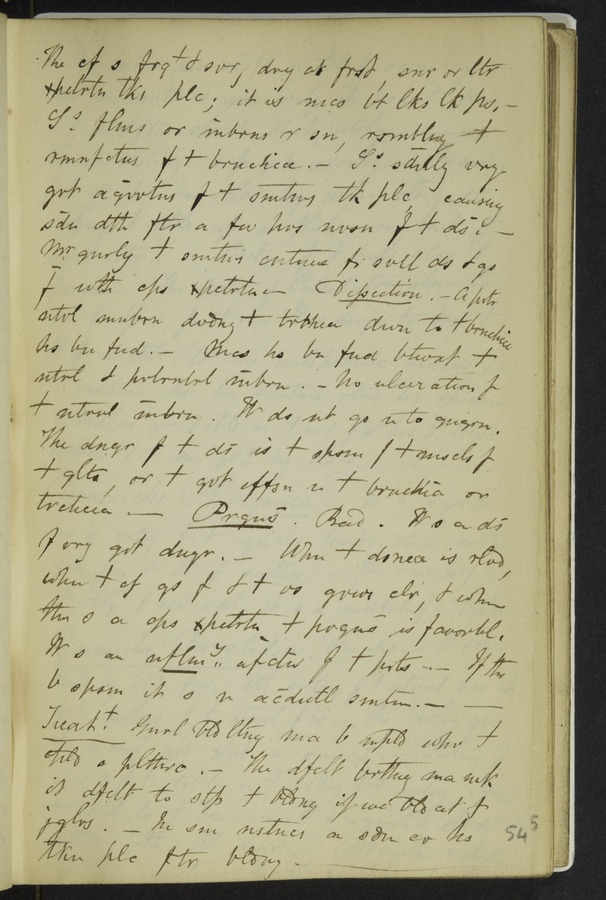 The cf s frqt & svr, dry at frst, snr or ltr
xpetrtn tks plc; it is mcs bt lks lk ps, –
Ss. flms or mbrns r sn, rsmblng t
rmnfctns f t bronchiae. – Ss. sddly vry
grt agrvtns f t smtms tk plc causing
sdn dth ftr a fw hrs
Mr gnrly t smtms cntnue fr svll ds & go
f with cps xpetrtn – Dissection. – A prtr
ntrl mmbrn dwng t trchea dwn to t bronchiae
hs bn fnd. – Mcs hs bn fnd btwxt t
ntrl & prtrntrl mbrn. – No ulceration f
t ntrnl mbrn. It ds nt go n to gngrn.
The dngr f t ds is t spsm f t muscls f
t glts, or t grt effsn n t bronchia or
trchea – Prgns. Bad. It s a ds
f vry grt dngr. – When t dsnea is rlvd,
when t cf gs f & t vs grows clr, & when
thr s a cps xpetrtn t prgns is favorbl.
It s an nflmy. afctn f t prts – – If thr
b spsm it s n accdntl smtm. – –
Treatt. Gnrl bldltng ma b mpld whn t
chld s plthrc. – The dfclt brthng ma mk
it dfclt to stp t bldng if we bld at t
jglrs. – In sm nstncs a sdn cr hs
tkn plc ftr bldng –
545